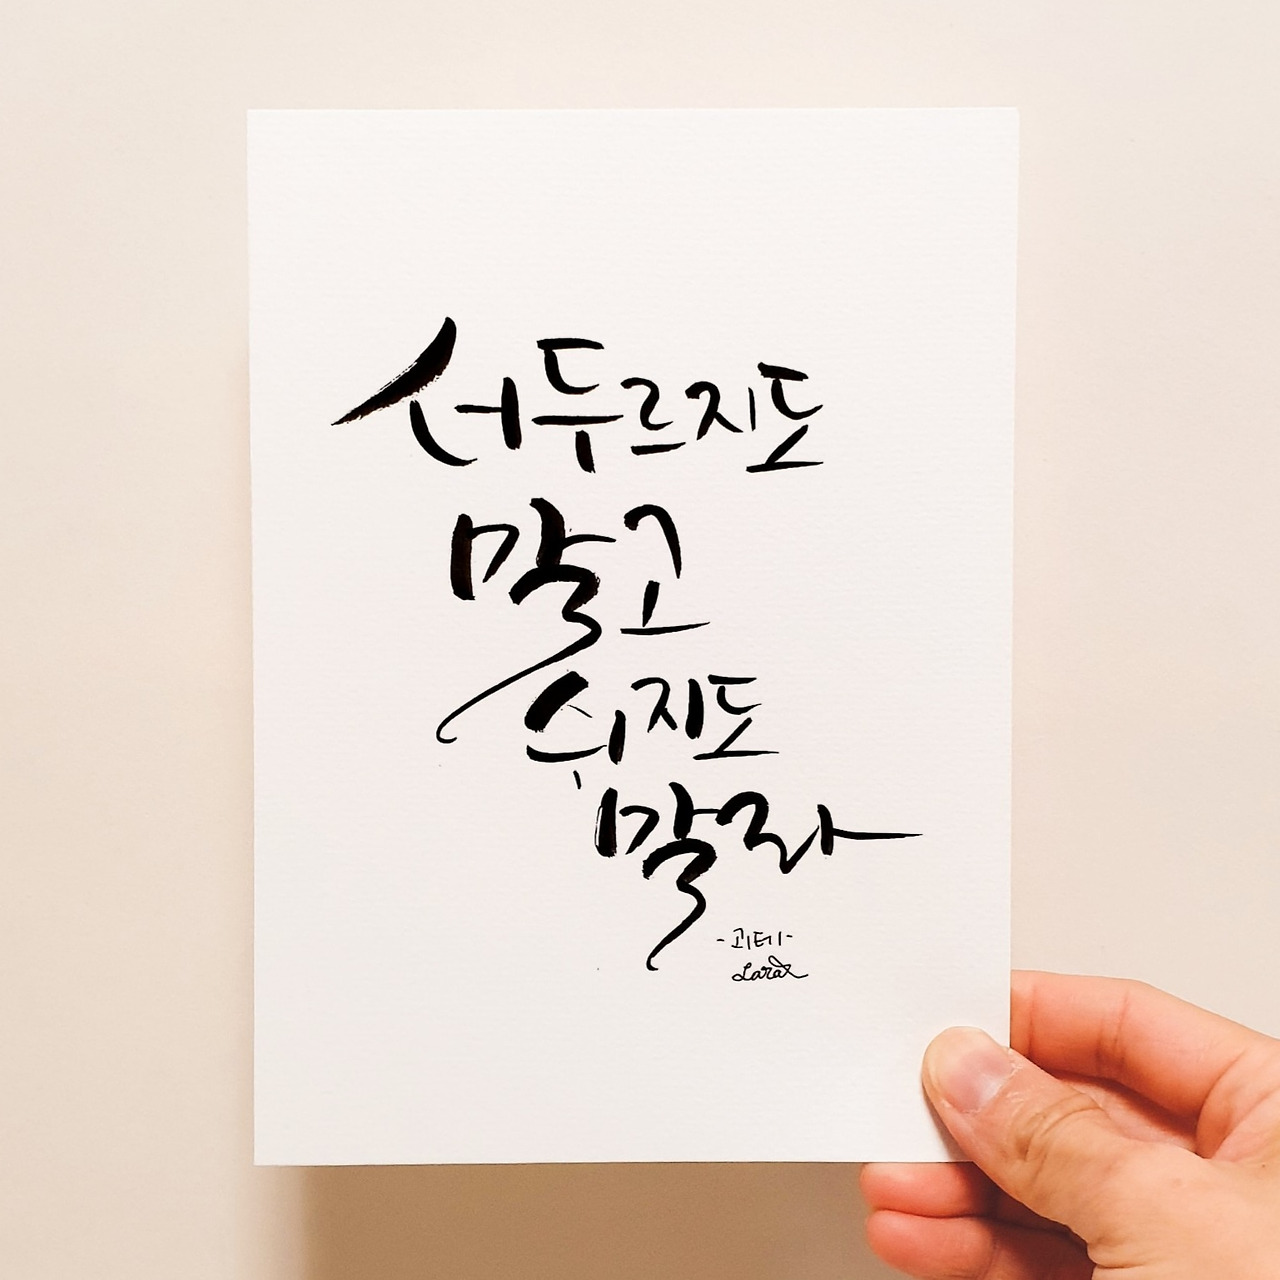 서두르지도
말고
쉬지도
말라
-괴테-